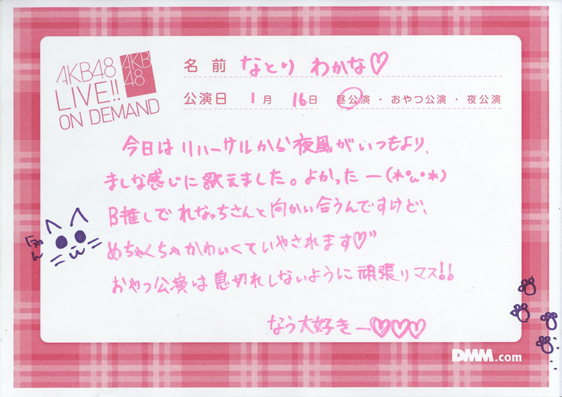 AKB48
LIVE!!
ON DEMAND
AKB
48
名前 なとり わかな♡
公演日 1月 16日 昼公演・おやつ公演・夜公演
今日はリハーサルから夜風がいつもより、
ましな感じに歌えました。よかったー(*^^*)
B推しでれなっちさんと向かい合うんですけど、
めちゃくちゃかわいくていやされます♡"
おやつ公演は息切れしないように頑張りマス!!
なう大好きー♡♡♡
にゃん
DMM.com